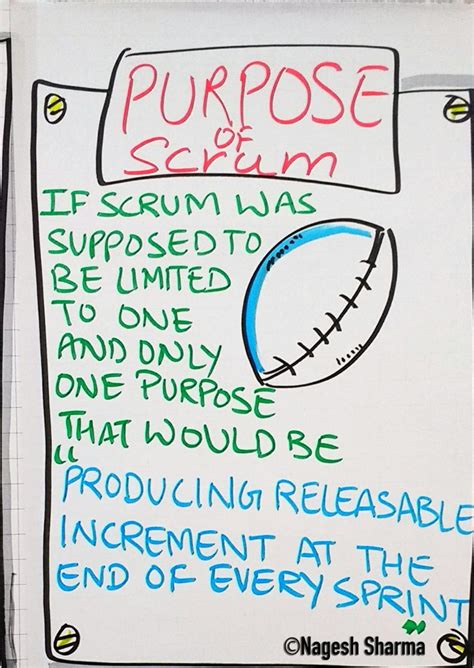 PURPOSE
OF
Scrum
IF SCRUM WAS
SUPPOSED TO
BE LIMITED
TO ONE
AND ONLY
ONE PURPOSE
THAT WOULD BE
"PRODUCING RELEASABLE
INCREMENT AT THE
END OF EVERY SPRINT"
©Nagesh Sharma